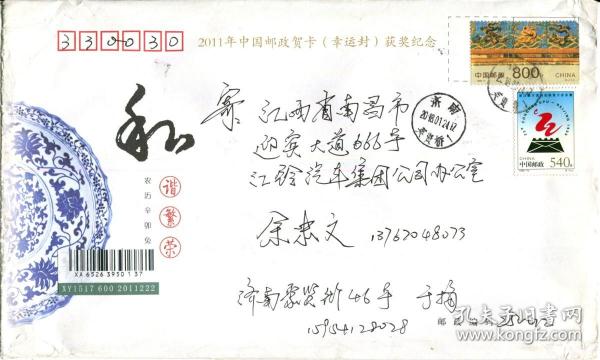 330030
2011年中国邮政贺卡(幸运封)获奖纪念
中国邮政 800分 CHINA
CHINA
中国邮政 540分
和
谐
繁
荣
农历辛卯兔
寄 江西省南昌市
迎宾大道666号
江铃汽车集团公司办公室
余来文 13767048073
济南
2018.01.24.12
XA 6526 3950 1 37
XY1517 600 2011222
济南 街46号 于
15954128028
邮政编码
孔夫子旧书网